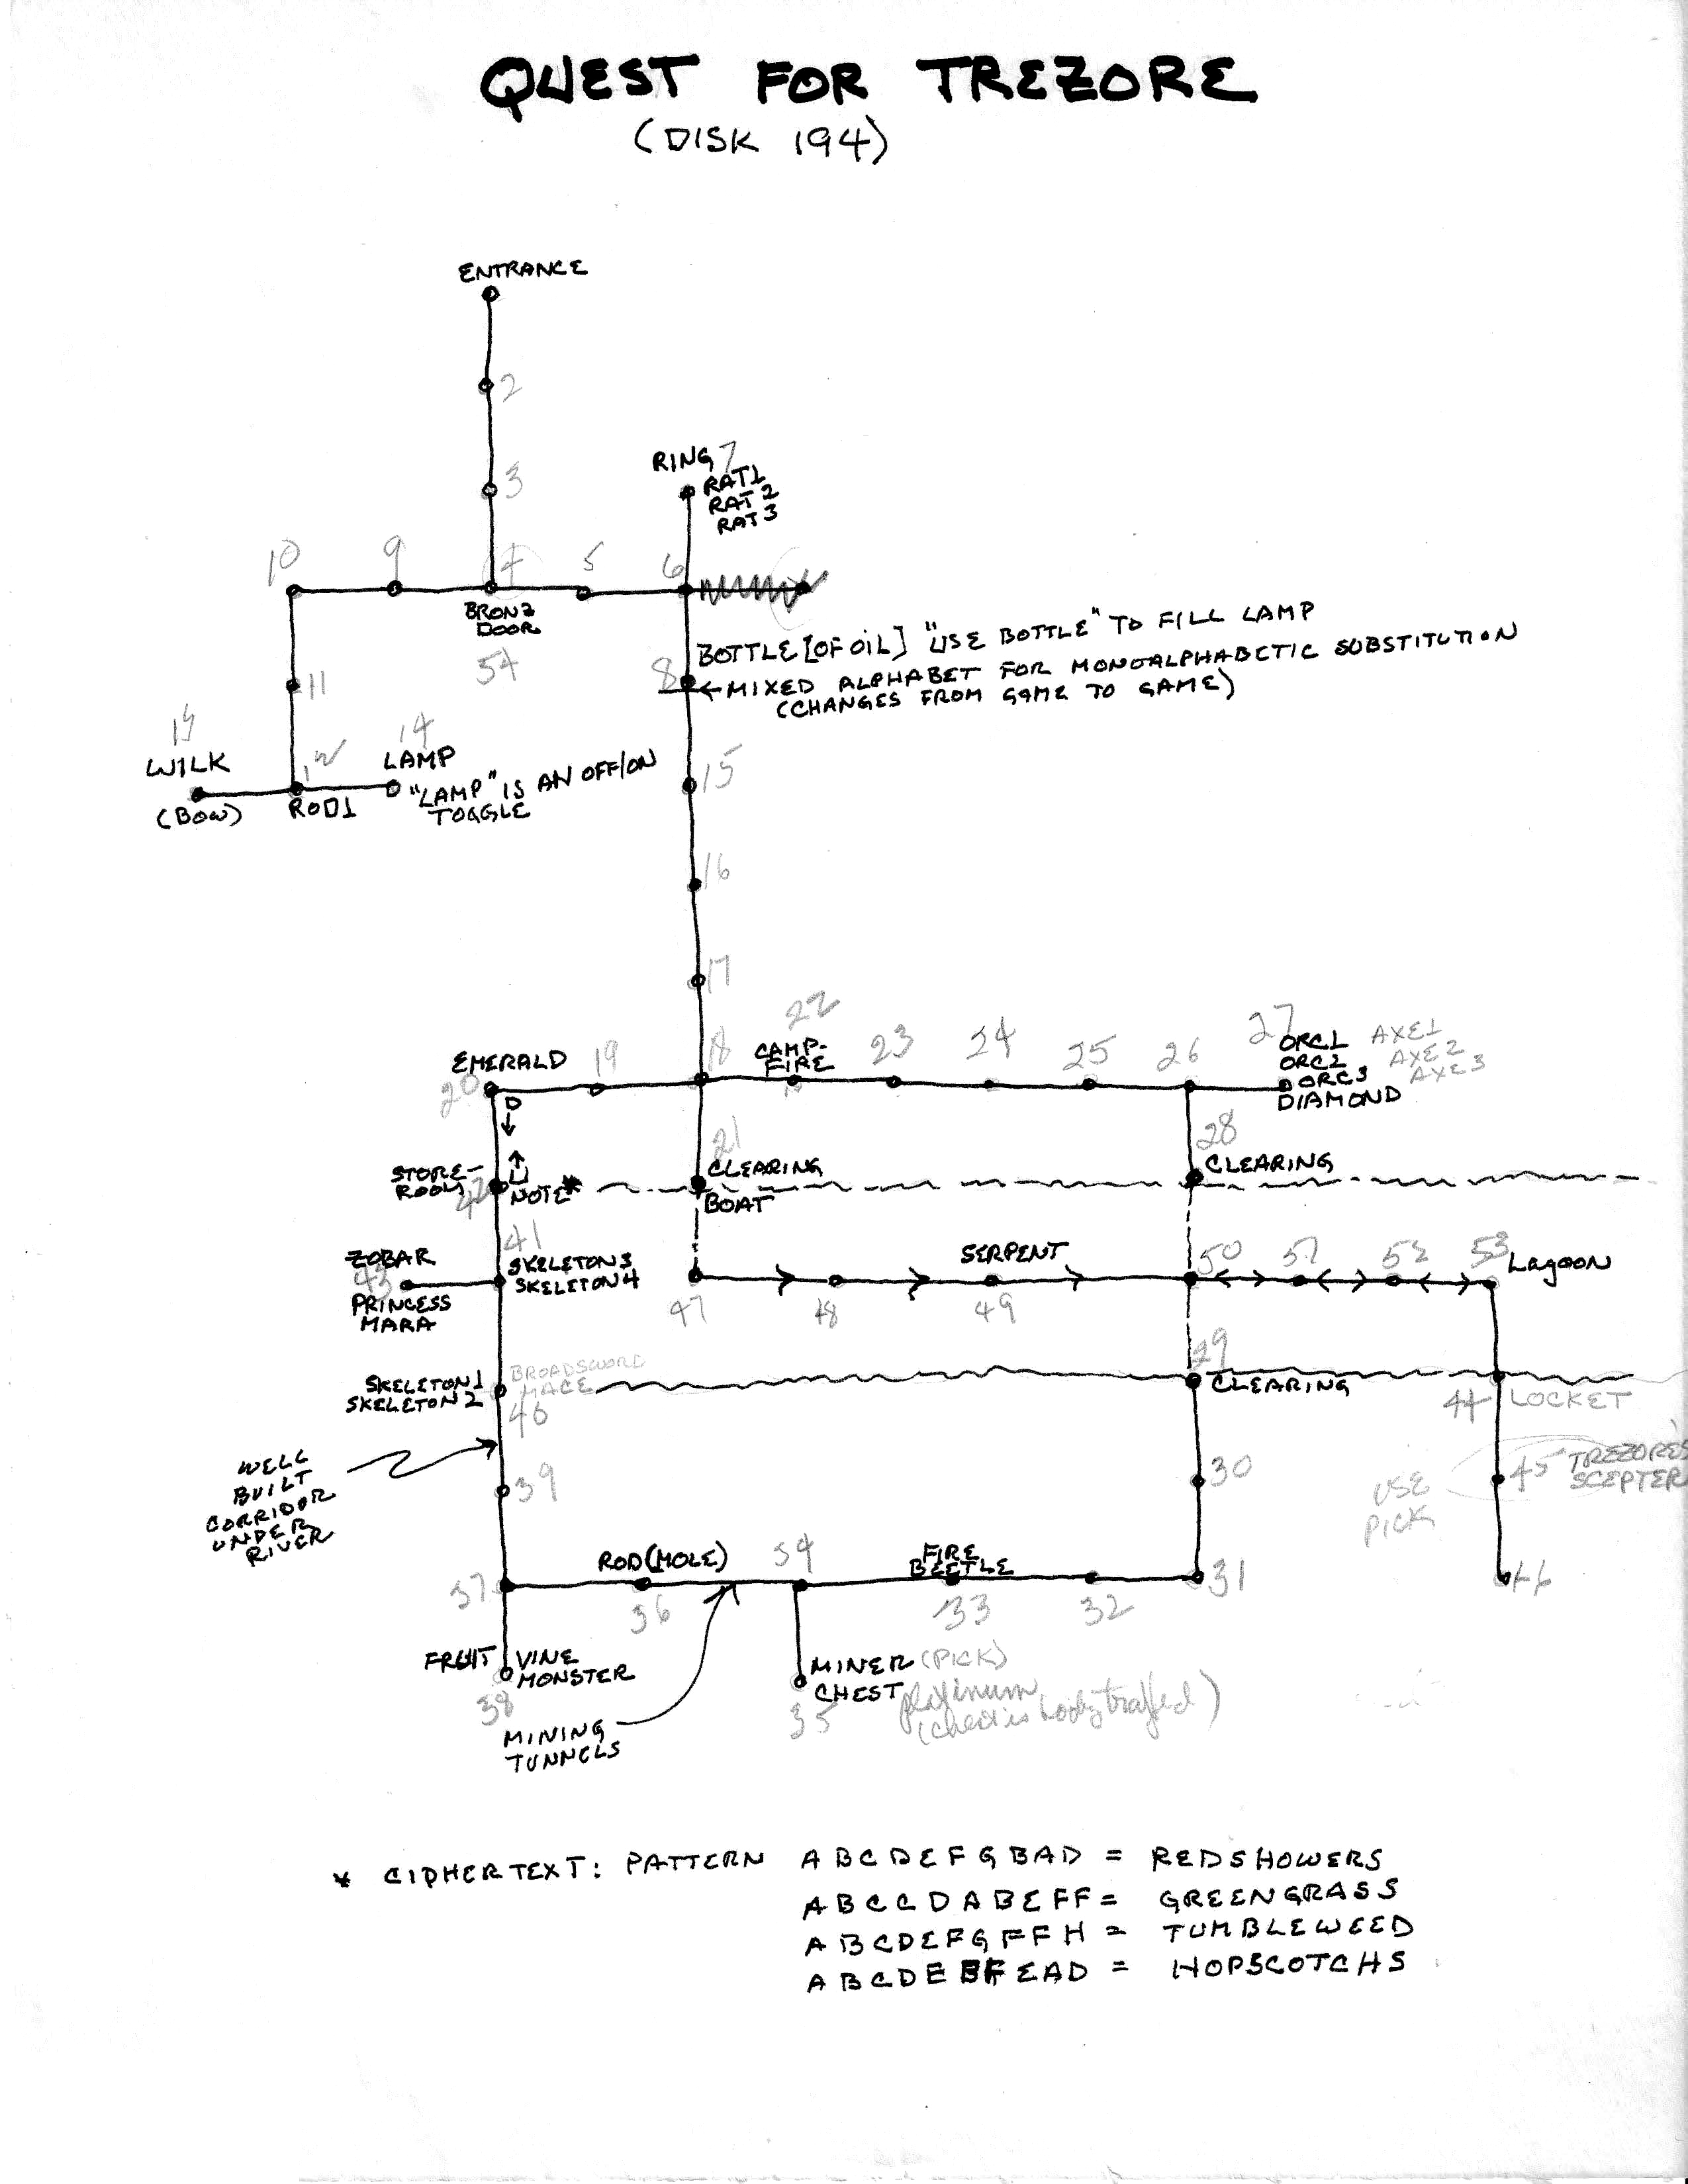 QUEST FOR TREZORE
(DISK 194)
ENTRANCE
2
3
RING 7
RAT1
RAT 2
RAT 3
10
9
4
5
6
BRONZ
DOOR
54
BOTTLE [OF OIL] "USE BOTTLE" TO FILL LAMP
8
← MIXED ALPHABET FOR MONOALPHABETIC SUBSTITUTION
(CHANGES FROM GAME TO GAME)
11
13
WILK
(BOW)
12
ROD1
14
LAMP
"LAMP" IS AN OFF/ON
TOGGLE
15
16
17
EMERALD
20
19
18
22
CAMP-
FIRE
23
24
25
26
27
ORC1 AXE1
ORC2 AXE2
ORC3 AXE3
DIAMOND
D
↓
↑
U
STORE-
ROOM
42
NOTE*
21
CLEARING
BOAT
28
CLEARING
41
ZOBAR
43
PRINCESS
MARA
SKELETON3
SKELETON4
SERPENT
47
48
49
50
51
52
53
Lagoon
SKELETON1
SKELETON2
BROADSWORD
MACE
40
29
CLEARING
44
LOCKET
WELL
BUILT
CORRIDOR
UNDER
RIVER
39
30
USE
PICK
45
TREZORE'S
SCEPTER
37
ROD (MOLE)
36
34
FIRE
BEETLE
33
32
31
46
FRUIT
VINE
MONSTER
38
MINING
TUNNELS
MINER (PICK)
CHEST platinum
35
(chest is booby trapped)
* CIPHERTEXT: PATTERN ABCDEFGBAD = REDSHOWERS
ABCCDABEFF = GREENGRASS
ABCDEFGFFH = TUMBLEWEED
ABCDEBFEAD = HOPSCOTCHS